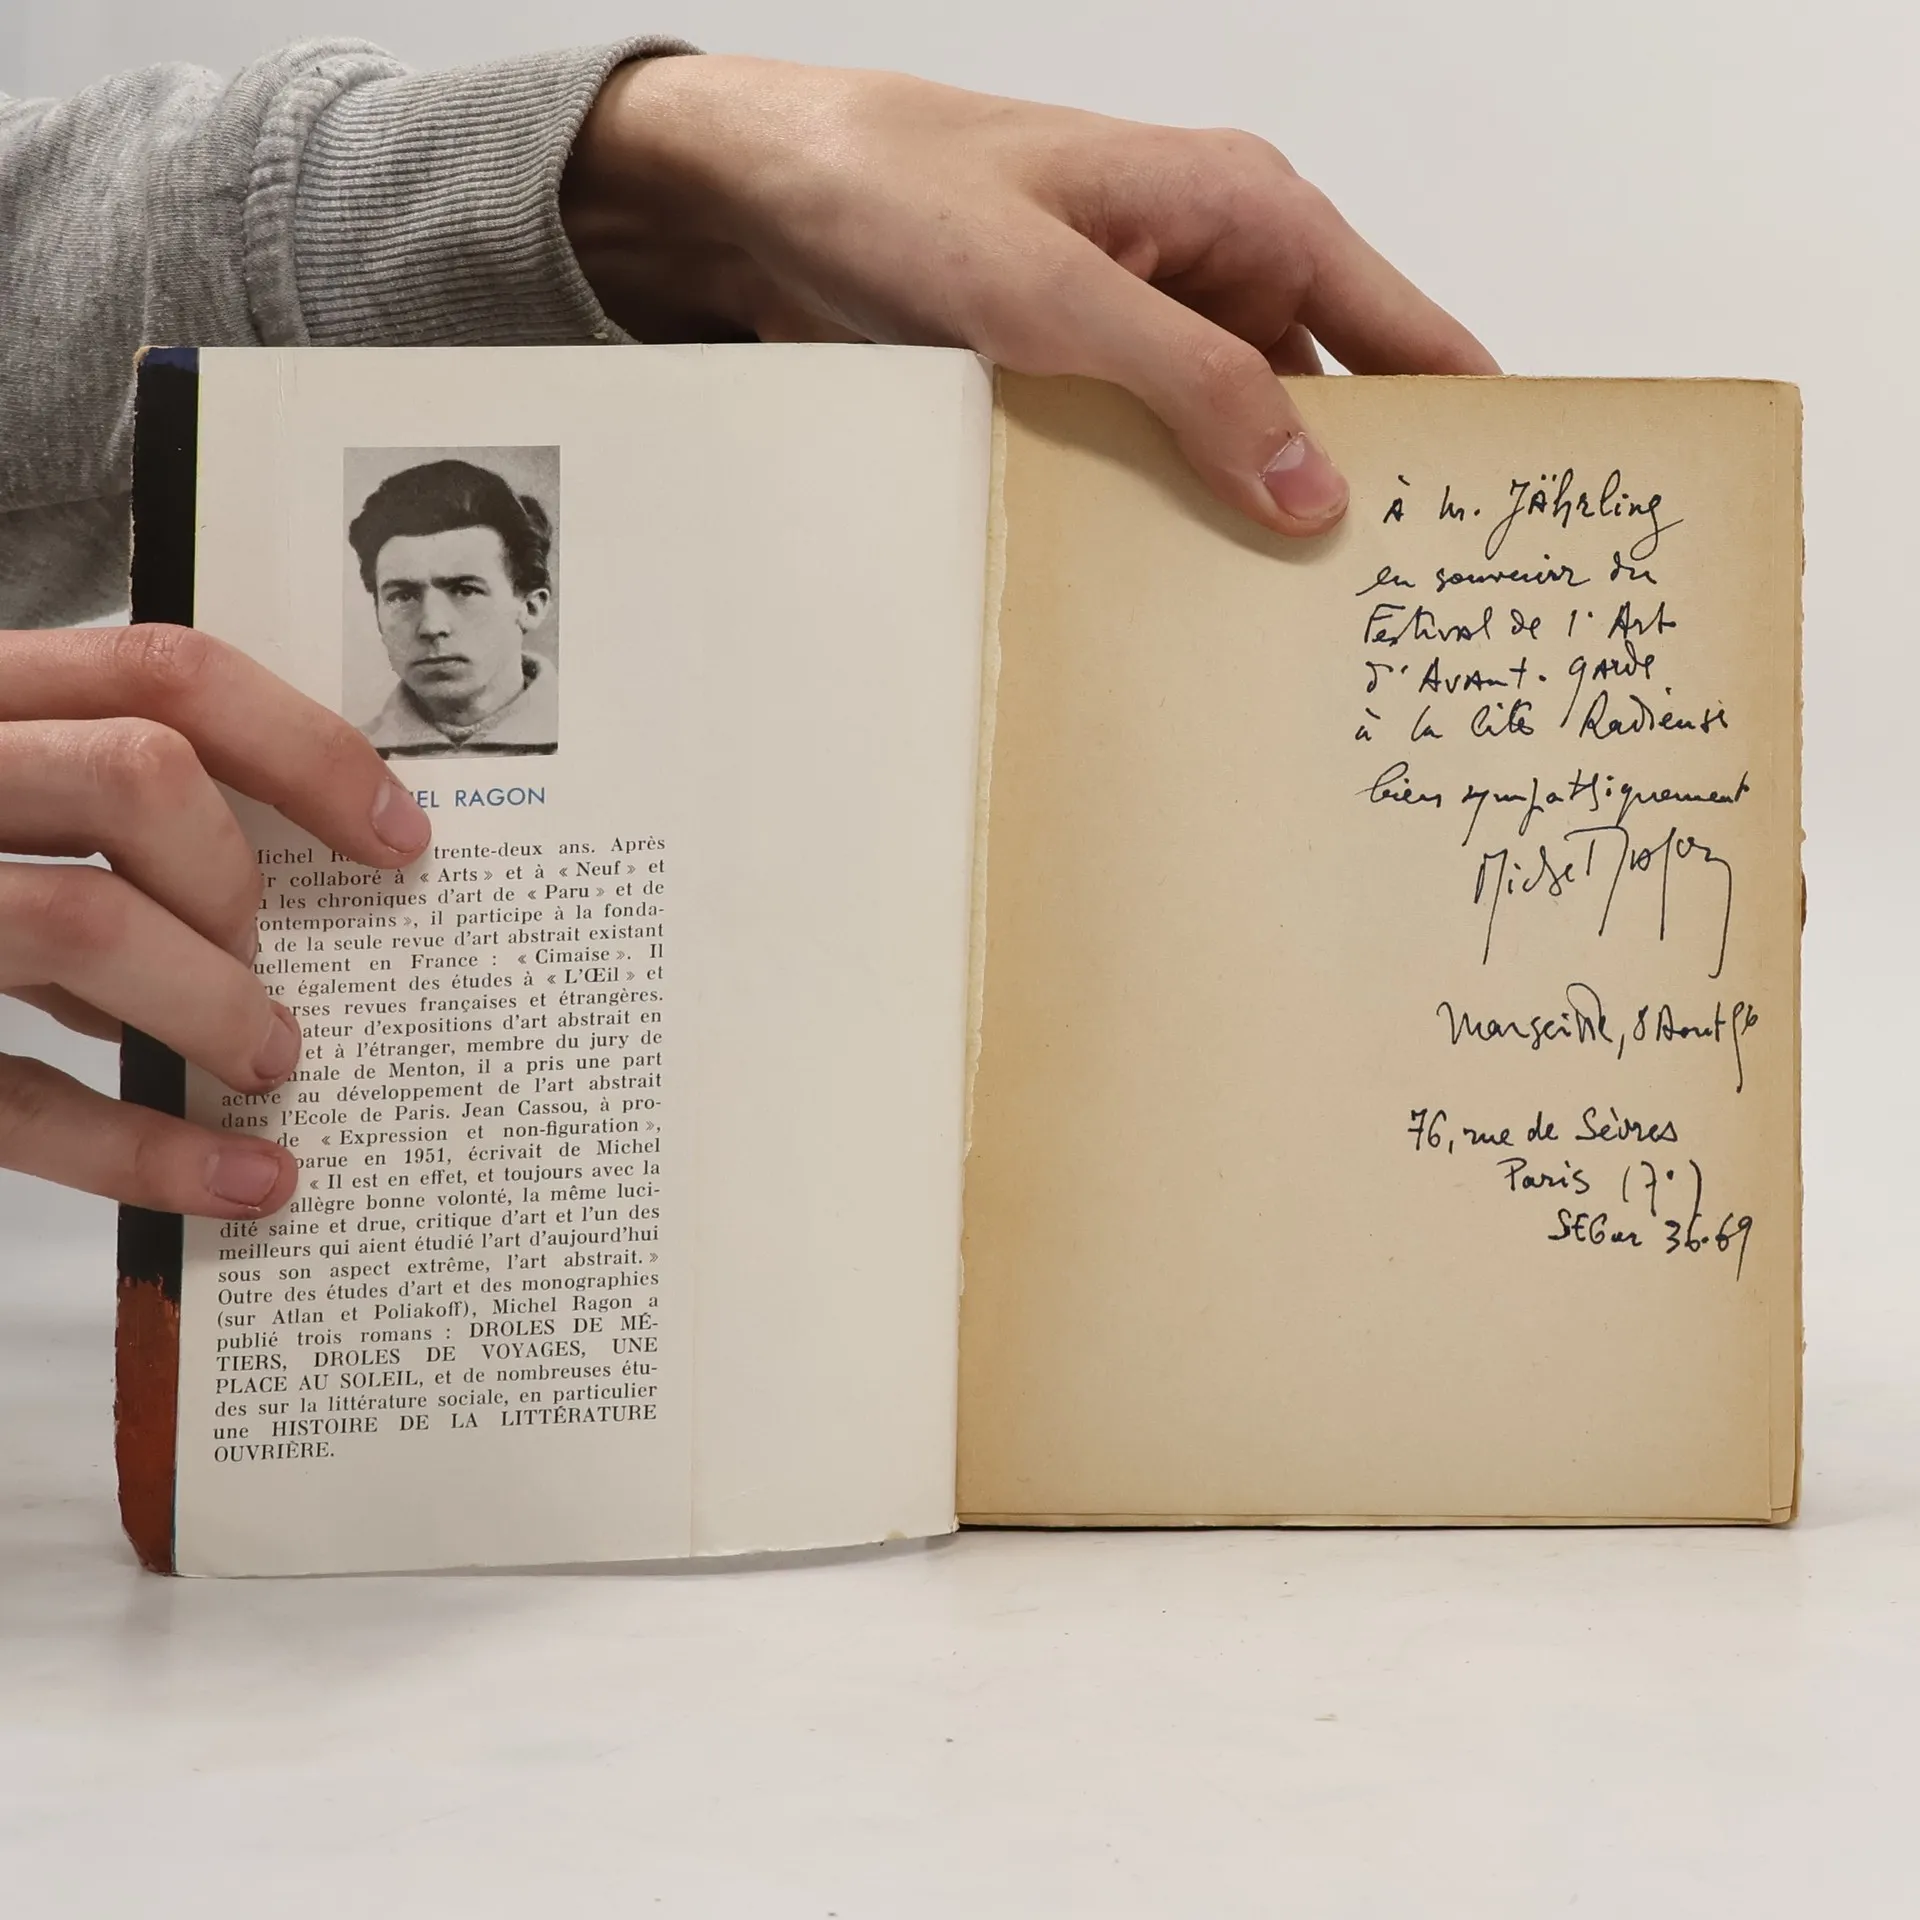 EL RAGON
Michel R trente-deux ans. Après
r collaboré à « Arts » et à « Neuf » et
les chroniques d'art de « Paru » et de
ontemporains », il participe à la fonda-
n de la seule revue d'art abstrait existant
uellement en France : « Cimaise ». Il
ne également des études à « L'Œil » et
erses revues françaises et étrangères.
ateur d'expositions d'art abstrait en
et à l'étranger, membre du jury de
nnale de Menton, il a pris une part
active au développement de l'art abstrait
dans l'Ecole de Paris. Jean Cassou, à pro-
de « Expression et non-figuration »,
parue en 1951, écrivait de Michel
« Il est en effet, et toujours avec la
allègre bonne volonté, la même luci-
dité saine et drue, critique d'art et l'un des
meilleurs qui aient étudié l'art d'aujourd'hui
sous son aspect extrême, l'art abstrait. »
Outre des études d'art et des monographies
(sur Atlan et Poliakoff), Michel Ragon a
publié trois romans : DROLES DE MÉ-
TIERS, DROLES DE VOYAGES, UNE
PLACE AU SOLEIL, et de nombreuses étu-
des sur la littérature sociale, en particulier
une HISTOIRE DE LA LITTÉRATURE
OUVRIÈRE.
à M. Jährling
en souvenir du
Festival de l'Art
d'Avant-garde
à la Cité Radieuse
bien sympathiquement
Michel Ragon
Marseille, 8 Aout 56
76, rue de Sèvres
Paris (7°)
SEGur 36.69